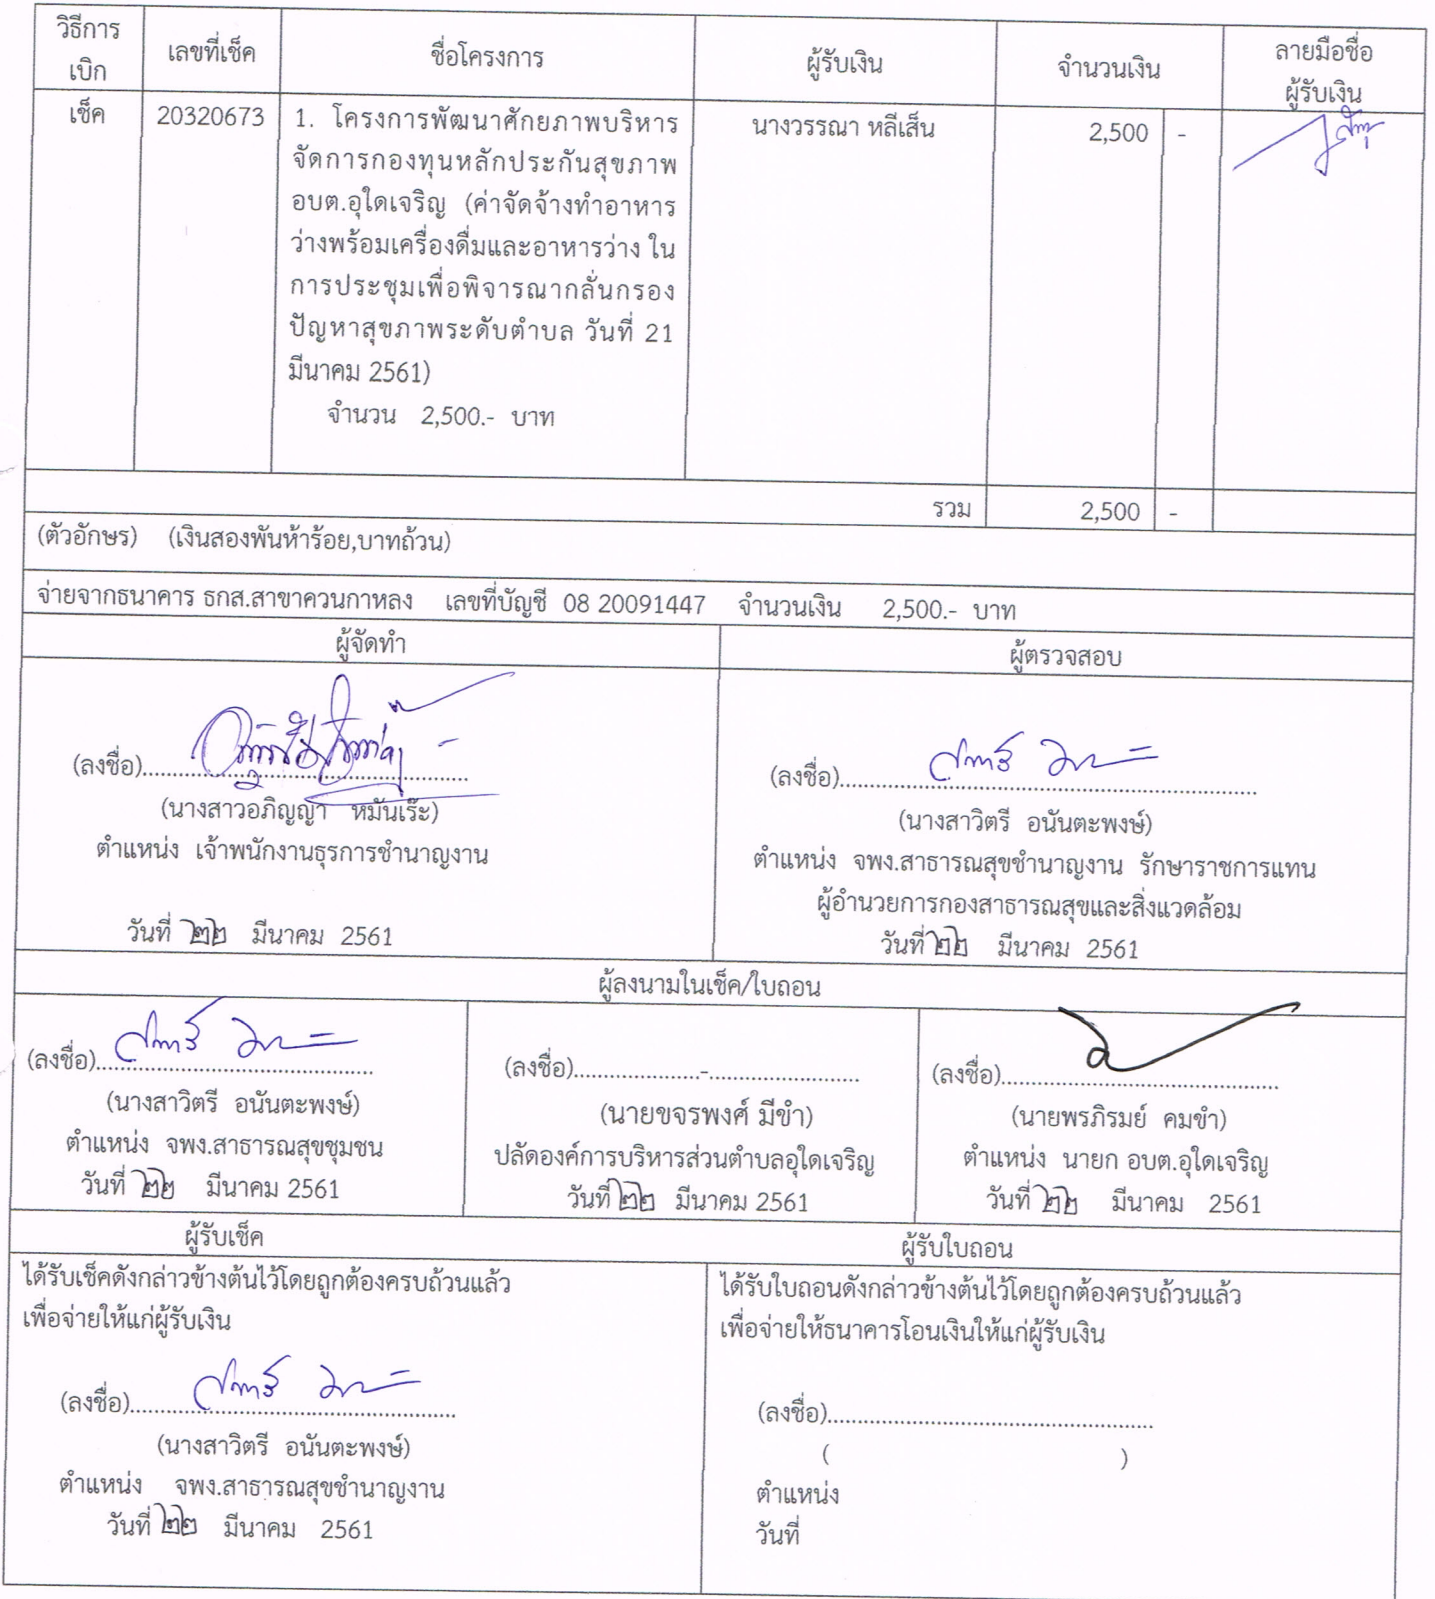 วิธีการ
เบิก
เลขที่เช็ค
ชื่อโครงการ
ผู้รับเงิน
จำนวนเงิน
ลายมือชื่อ
ผู้รับเงิน
เช็ค 20320673 1. โครงการพัฒนาศักยภาพบริหาร นางวรรณา หลีเส็น 2,500 -
จัดการกองทุนหลักประกันสุขภาพ
อบต.อุใดเจริญ (ค่าจัดจ้างทำอาหาร
ว่างพร้อมเครื่องดื่มและอาหารว่าง ใน
การประชุมเพื่อพิจารณากลั่นกรอง
ปัญหาสุขภาพระดับตำบล วันที่ 21
มีนาคม 2561)
จำนวน 2,500.- บาท
รวม 2,500 -
(ตัวอักษร) (เงินสองพันห้าร้อย,บาทถ้วน)
จ่ายจากธนาคาร ธกส.สาขาควนกาหลง เลขที่บัญชี 08 20091447 จำนวนเงิน 2,500.- บาท
ผู้จัดทำ
(ลงชื่อ)
(นางสาวอภิญญา หมันเร๊ะ)
ตำแหน่ง เจ้าพนักงานธุรการชำนาญงาน
วันที่ ๒๒ มีนาคม 2561
ผู้ตรวจสอบ
(ลงชื่อ)
(นางสาวิตรี อนันตะพงษ์)
ตำแหน่ง จพง.สาธารณสุขชำนาญงาน รักษาราชการแทน
ผู้อำนวยการกองสาธารณสุขและสิ่งแวดล้อม
วันที่ ๒๒ มีนาคม 2561
ผู้ลงนามในเช็ค/ใบถอน
(ลงชื่อ)
(นางสาวิตรี อนันตะพงษ์)
ตำแหน่ง จพง.สาธารณสุขชุมชน
วันที่ ๒๒ มีนาคม 2561
(ลงชื่อ).....................-.........................
(นายขจรพงศ์ มีขำ)
ปลัดองค์การบริหารส่วนตำบลอุใดเจริญ
วันที่ ๒๒ มีนาคม 2561
(ลงชื่อ)
(นายพรภิรมย์ คมขำ)
ตำแหน่ง นายก อบต.อุใดเจริญ
วันที่ ๒๒ มีนาคม 2561
ผู้รับเช็ค
ได้รับเช็คดังกล่าวข้างต้นไว้โดยถูกต้องครบถ้วนแล้ว
เพื่อจ่ายให้แก่ผู้รับเงิน
(ลงชื่อ)
(นางสาวิตรี อนันตะพงษ์)
ตำแหน่ง จพง.สาธารณสุขชำนาญงาน
วันที่ ๒๒ มีนาคม 2561
ผู้รับใบถอน
ได้รับใบถอนดังกล่าวข้างต้นไว้โดยถูกต้องครบถ้วนแล้ว
เพื่อจ่ายให้ธนาคารโอนเงินให้แก่ผู้รับเงิน
(ลงชื่อ)......................................................
( )
ตำแหน่ง
วันที่